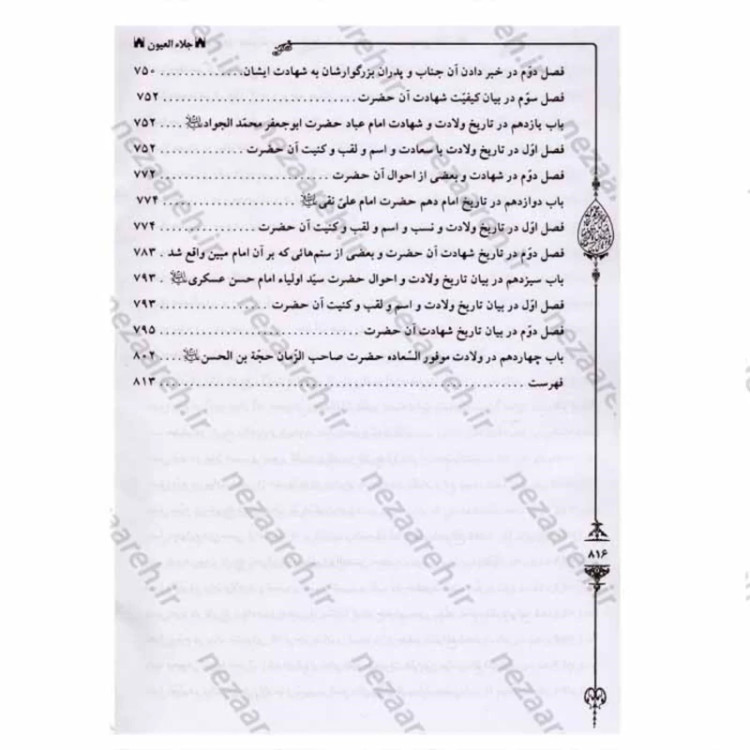 جلاء العیون
فصل دوّم در خبر دادن آن جناب و پدران بزرگوارشان به شهادت ایشان............ ۷۵۰
فصل سوّم در بیان کیفیّت شهادت آن حضرت............................ ۷۵۲
باب یازدهم در تاریخ ولادت و شهادت امام عباد حضرت ابوجعفر محمّد الجواد .... ۷۵۲
فصل اوّل در تاریخ ولادت با سعادت و اسم و لقب و کنیت آن حضرت ............ ۷۵۲
فصل دوّم در شهادت و بعضی از احوال آن حضرت ........................ ۷۷۲
باب دوازدهم در تاریخ امام دهم حضرت امام علیّ نقی ................... ۷۷۴
فصل اوّل در تاریخ ولادت و نسب و اسم و لقب و کنیت آن حضرت ............ ۷۷۴
فصل دوّم در تاریخ شهادت آن حضرت و بعضی از ستم‌هائی که بر آن امام مبین واقع شد . ۷۸۳
باب سیزدهم در بیان تاریخ ولادت و احوال حضرت سیّد اولیاء امام حسن عسکری . ۷۹۳
فصل اوّل در بیان تاریخ ولادت و اسم و لقب و کنیت آن حضرت ................ ۷۹۳
فصل دوّم در بیان تاریخ شهادت آن حضرت ............................. ۷۹۵
باب چهاردهم در ولادت موفور السّعاده حضرت صاحب الزّمان حجّة بن الحسن .... ۸۰۲
فهرست .................................................... ۸۱۳
۸۱۶
nezaareh.ir